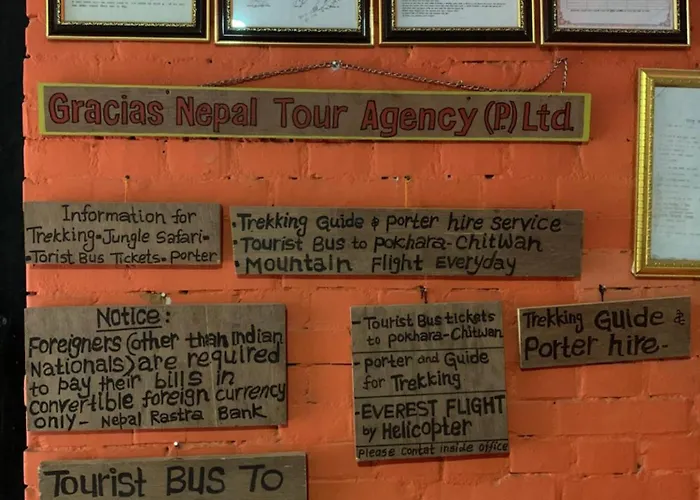 Gracias Nepal Tour Agency (P.) Ltd.
Information for
Trekking-Jungle Safari-
-Torist Bus Tickets- Porter
•Trekking Guide & porter hire service
•Tourist Bus to pokhara-Chitwan
•Mountain Flight Everyday
Notice:
Foreigners (other than Indian
Nationals) are required
to pay their bills in
convertible foreign currency
only- Nepal Rastra Bank
-Tourist Bus tickets
to pokhara-Chitwan
-porter and Guide
for Trekking
-EVEREST FLIGHT
by Helicopter
Please Contat inside office
Trekking Guide &
Porter hire-
Tourist BUS To